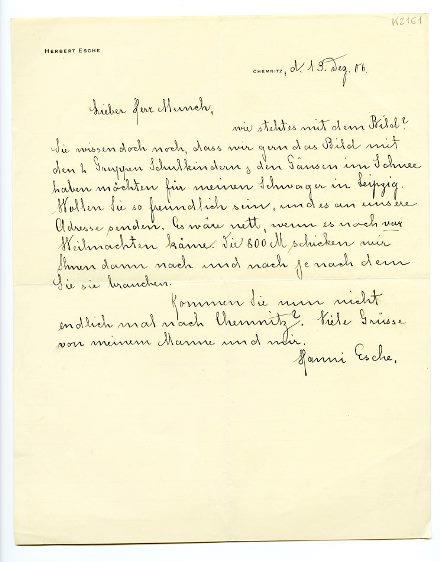 K2161
HERBERT ESCHE
CHEMNITZ, d. 13. Dez. 06.
Lieber Herr Munch,
wie steht es mit dem Bild?
Sie wissen doch noch, dass wir gern das Bild mit
den 2 Gruppen Schulkindern & den Gänsen im Schnee
haben möchten für meinen Schwager in Leipzig.
Wollen Sie so freundlich sein, und es an unsere
Adresse senden. Es wäre nett, wenn es noch vor
Weihnachten käme. Die 800 M schicken wir
Ihnen dann nach und nach je nach dem
Sie sie brauchen.
Kommen Sie nun nicht
endlich mal nach Chemnitz? Viele Grüsse
von meinem Manne und mir.
Hanni Esche.